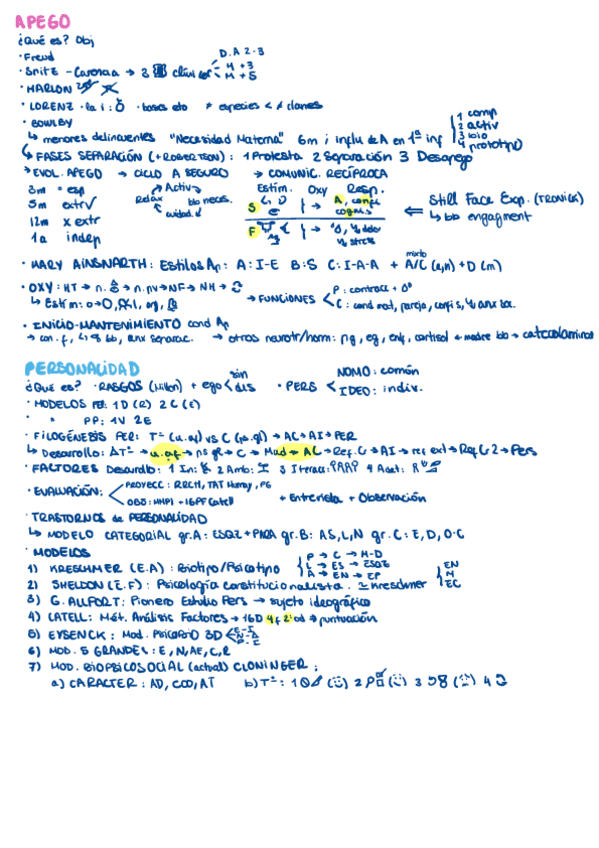 APEGO
¿Qué es? Obj
· Freud
D.A 2-3
· Spitz - Carencia → 3 clín M +3
M +5
· HARLOW
· LORENZ · la 1: · bases eto * especies
· BOWLBY
↳ menores delincuentes "Necesidad Materna" 6m ; influ de A en 1ª inf
1 comp
2 activ
3 loio
4 prototipo
↳ FASES SEPARACIÓN (+ROBERTSON): 1 Protesta 2 Separación 3 Desapego
→ EVOL. APEGO → CICLO A SEGURO → COMUNIC. RECÍPROCA
3m = esp
5m extrv
12m x extr
1a indep
Activ
Relax bb neces.
cuidad.
Estím. Oxy Resp.
S } → A, conf
F } →
⇐ Still Face Exp. (TRONICK)
↳ bb engagment
· MARY AINSWARTH: Estilos Ap: A: I-E B:S C: I-A-A + A/C (a,h) + D (m)
mixto
· OXY: HT → n. → n.pv → NF → NH →
↳ Estím:
→ FUNCIONES < P: contracc +
C: cond mad, pareja, confis, ↓ anx soc.
· INICIO-MANTENIMIENTO cond Ap
→ con.f, bb, anx separac. → otros neurotr/horm: pg, eg, enk, cortisol + madre bb → catecolaminas
PERSONALIDAD
¿Qué es? · RASGOS (Millon) + ego < sin
dis
· PERS < NOMO: común
IDEO: indiv.
· MODELOS PER: 1D (R) 2C (E)
" " PP: 1V 2E
· FILOGÉNESIS PER: Tº (u.af) vs C (ps.gl) → AC → AI → PER
↳ Desarrollo: ΔTº → u.af → ps gl → C → Mad → AC → Ref.G → AI → ref ext → Ref G 2 → Pers
· FACTORES Desarollo: 1 In: 2 Amb: 3 Iterac: 4 Acet:
· EVALUACIÓN: < PROYECC: RRCH, TAT Murray, PG
OBJ: MMPI - 16PF Catell
+ Entrevista + Observación
· TRASTORNOS de PERSONALIDAD
↳ MODELO CATEGORIAL gr.A: ESQZ + PARA gr.B: AS, L, N gr.C: E, D, O-C
· MODELOS
1) KRESCHMER (E.A): Biotipo/Psicotipo { P → C → M-D
L → ES → ESQZ
A → EN → EP
2) SHELDON (E.F): Psicología constitucionalista. ≃ Kreschmer { EN
M
EC
3) G. ALLPORT: Pionero Estudio Pers → sujeto ideográfico
4) CATELL: Mét. Análisis Factores → 16D 4f 2º od → puntuación
5) EYSENCK: Mod. PSICOBIO 3D < E-I
6) MOD. 5 GRANDES: E, N, AE, C, R
7) MOD. BIOPSICOSOCIAL (actual) CLONINGER:
a) CARACTER: AD, COO, AT b) Tº: 1 2 3 4